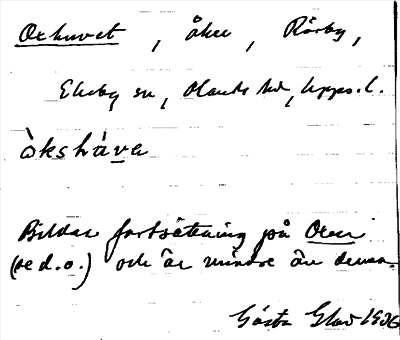 Oxhuvet, åker, Rörby,
Ekeby sn, Olands hd, Upps. l.
òkshùve
Bildar fortsättning på Oxen
(se d.o.) och är mindre än denna.
Gösta 1936